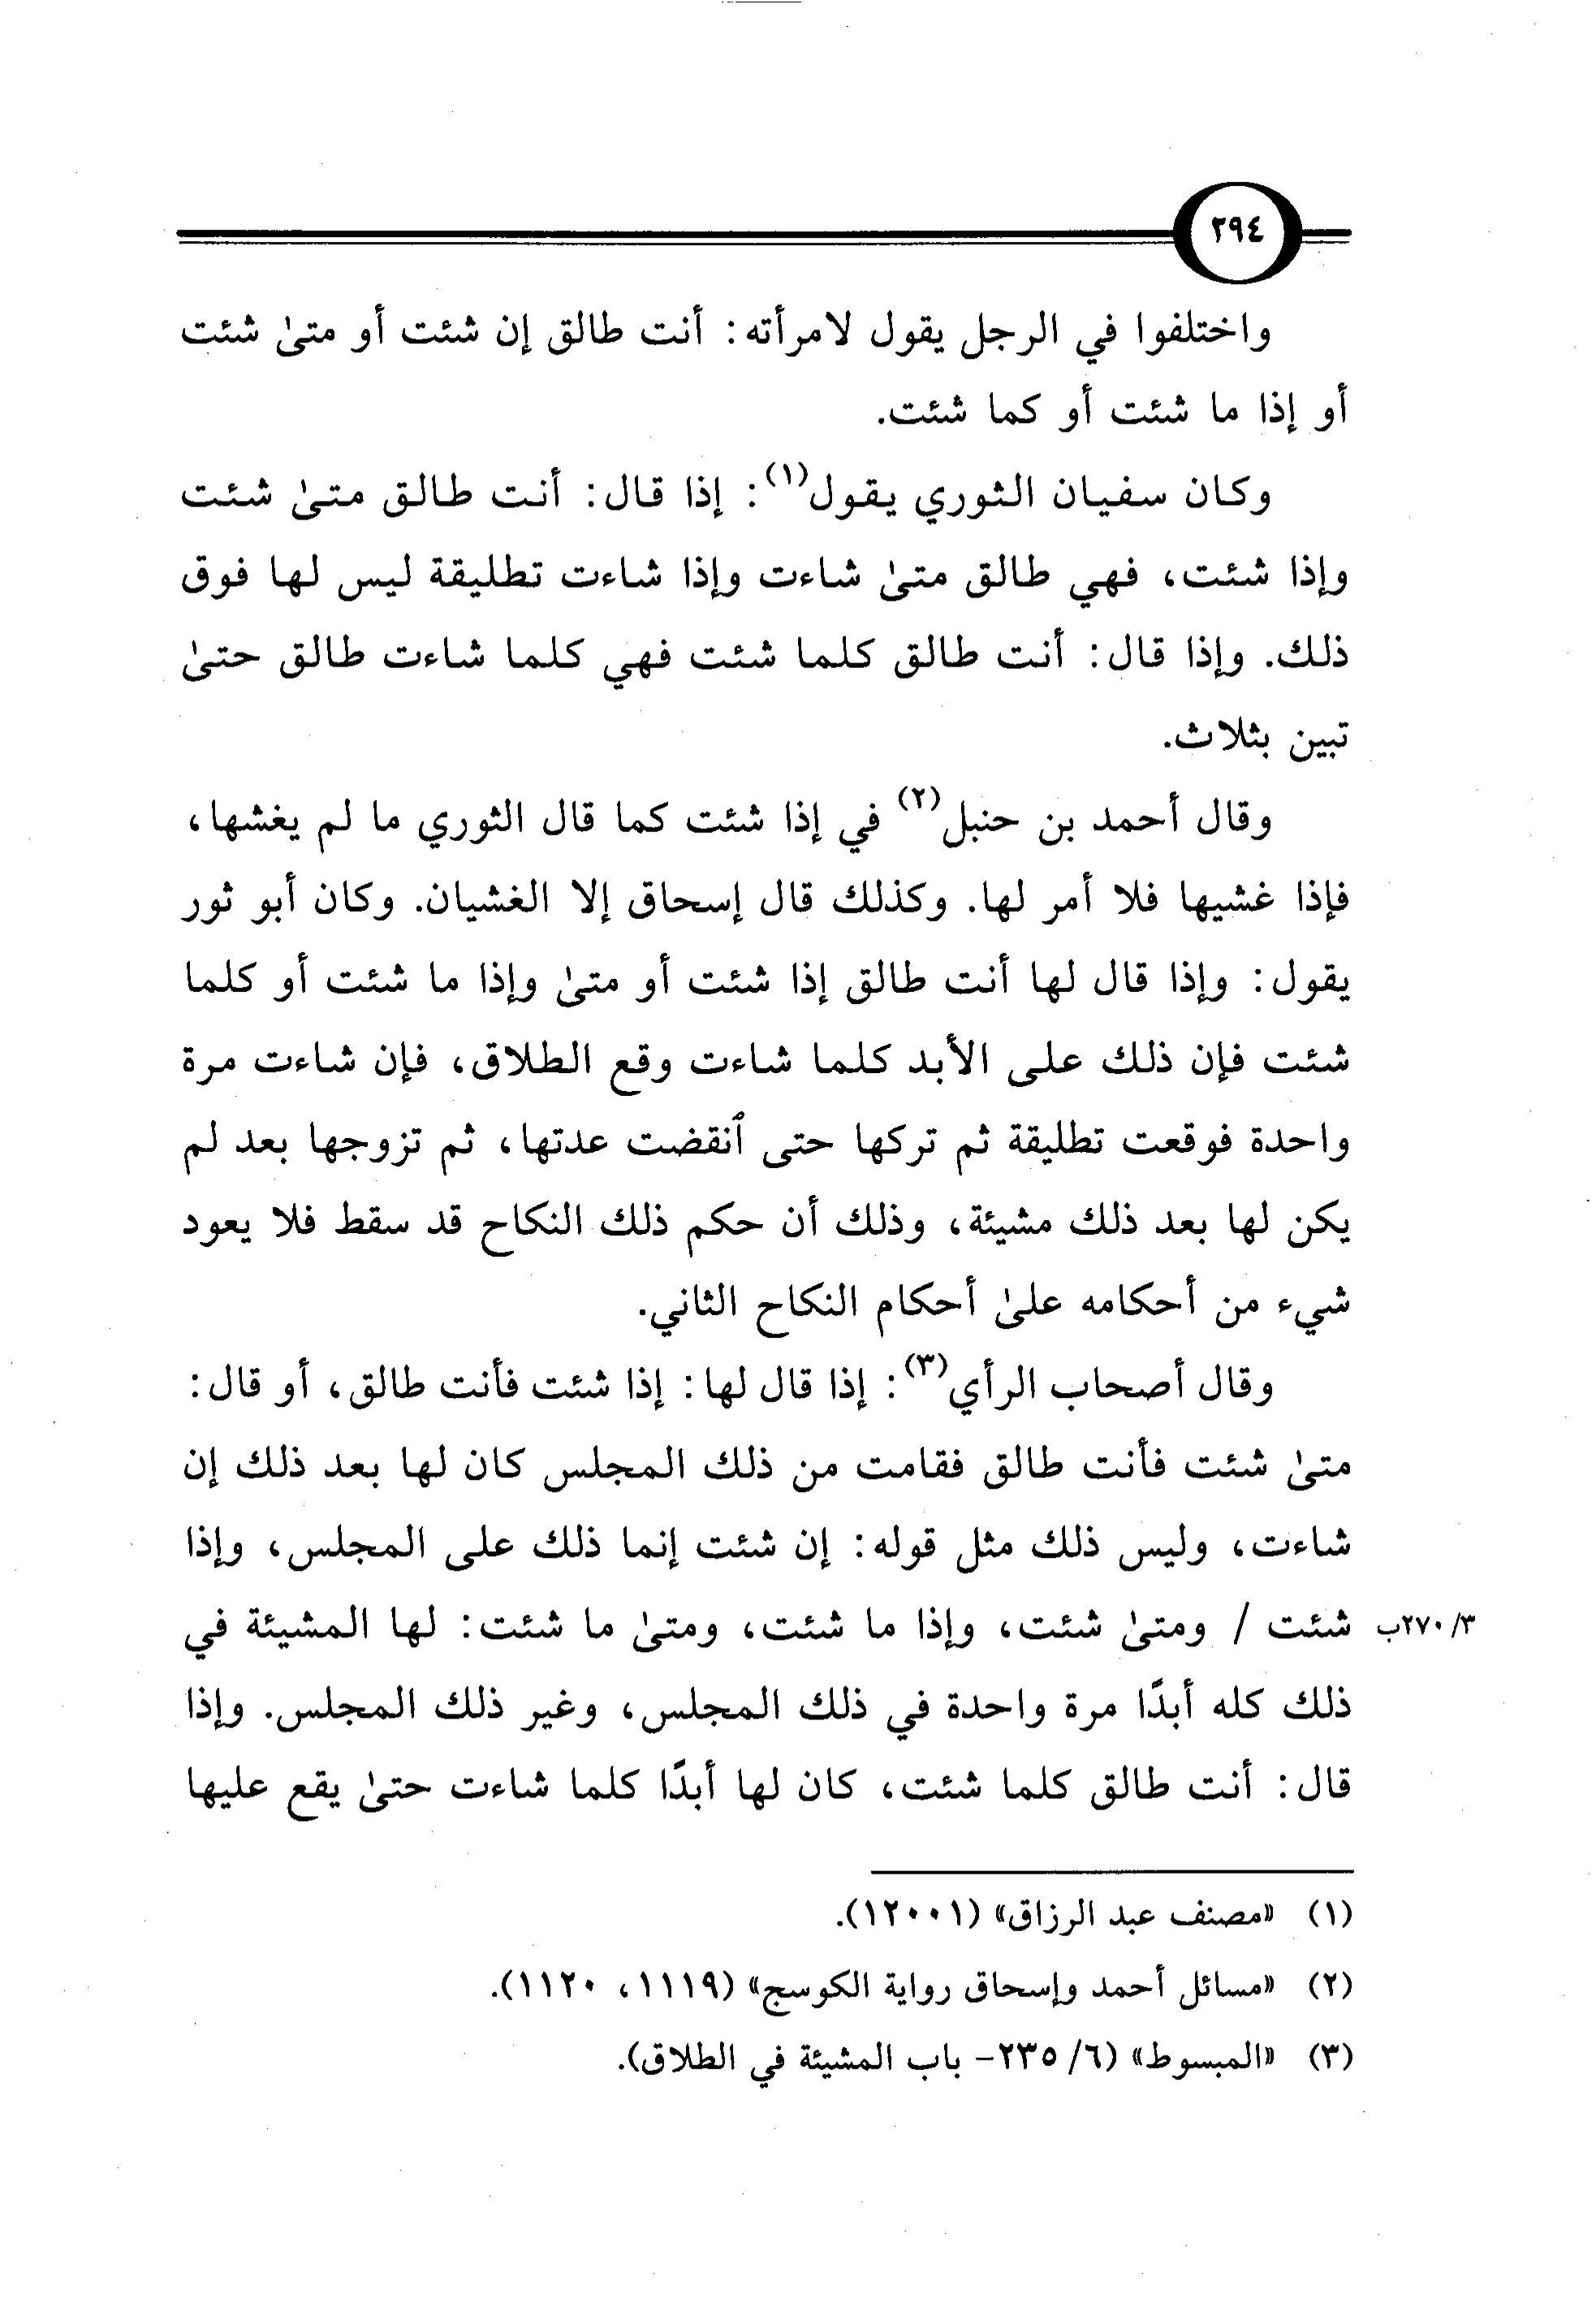 ٢٩٤
واختلفوا في الرجل يقول لامرأته: أنت طالق إن شئت أو متىٰ شئت
أو إذا ما شئت أو كما شئت.
وكان سفيان الثوري يقول(١): إذا قال: أنت طالق متىٰ شئت
وإذا شئت، فهي طالق متىٰ شاءت وإذا شاءت تطليقة ليس لها فوق
ذلك. وإذا قال: أنت طالق كلما شئت فهي كلما شاءت طالق حتىٰ
تبين بثلاث.
وقال أحمد بن حنبل(٢) في إذا شئت كما قال الثوري ما لم يغشها،
فإذا غشيها فلا أمر لها. وكذلك قال إسحاق إلا الغشيان. وكان أبو ثور
يقول: وإذا قال لها أنت طالق إذا شئت أو متىٰ وإذا ما شئت أو كلما
شئت فإن ذلك على الأبد كلما شاءت وقع الطلاق، فإن شاءت مرة
واحدة فوقعت تطليقة ثم تركها حتى ٱنقضت عدتها، ثم تزوجها بعد لم
يكن لها بعد ذلك مشيئة، وذلك أن حكم ذلك النكاح قد سقط فلا يعود
شيء من أحكامه علىٰ أحكام النكاح الثاني.
وقال أصحاب الرأي(٣): إذا قال لها: إذا شئت فأنت طالق، أو قال:
متىٰ شئت فأنت طالق فقامت من ذلك المجلس كان لها بعد ذلك إن
شاءت، وليس ذلك مثل قوله: إن شئت إنما ذلك على المجلس، وإذا
٣/ ٢٧٠ب شئت / ومتىٰ شئت، وإذا ما شئت، ومتىٰ ما شئت: لها المشيئة في
ذلك كله أبدًا مرة واحدة في ذلك المجلس، وغير ذلك المجلس. وإذا
قال: أنت طالق كلما شئت، كان لها أبدًا كلما شاءت حتىٰ يقع عليها
(١) «مصنف عبد الرزاق» (١٢٠٠١).
(٢) «مسائل أحمد وإسحاق رواية الكوسج» (١١١٩، ١١٢٠).
(٣) «المبسوط» (٦/ ٢٣٥- باب المشيئة في الطلاق).